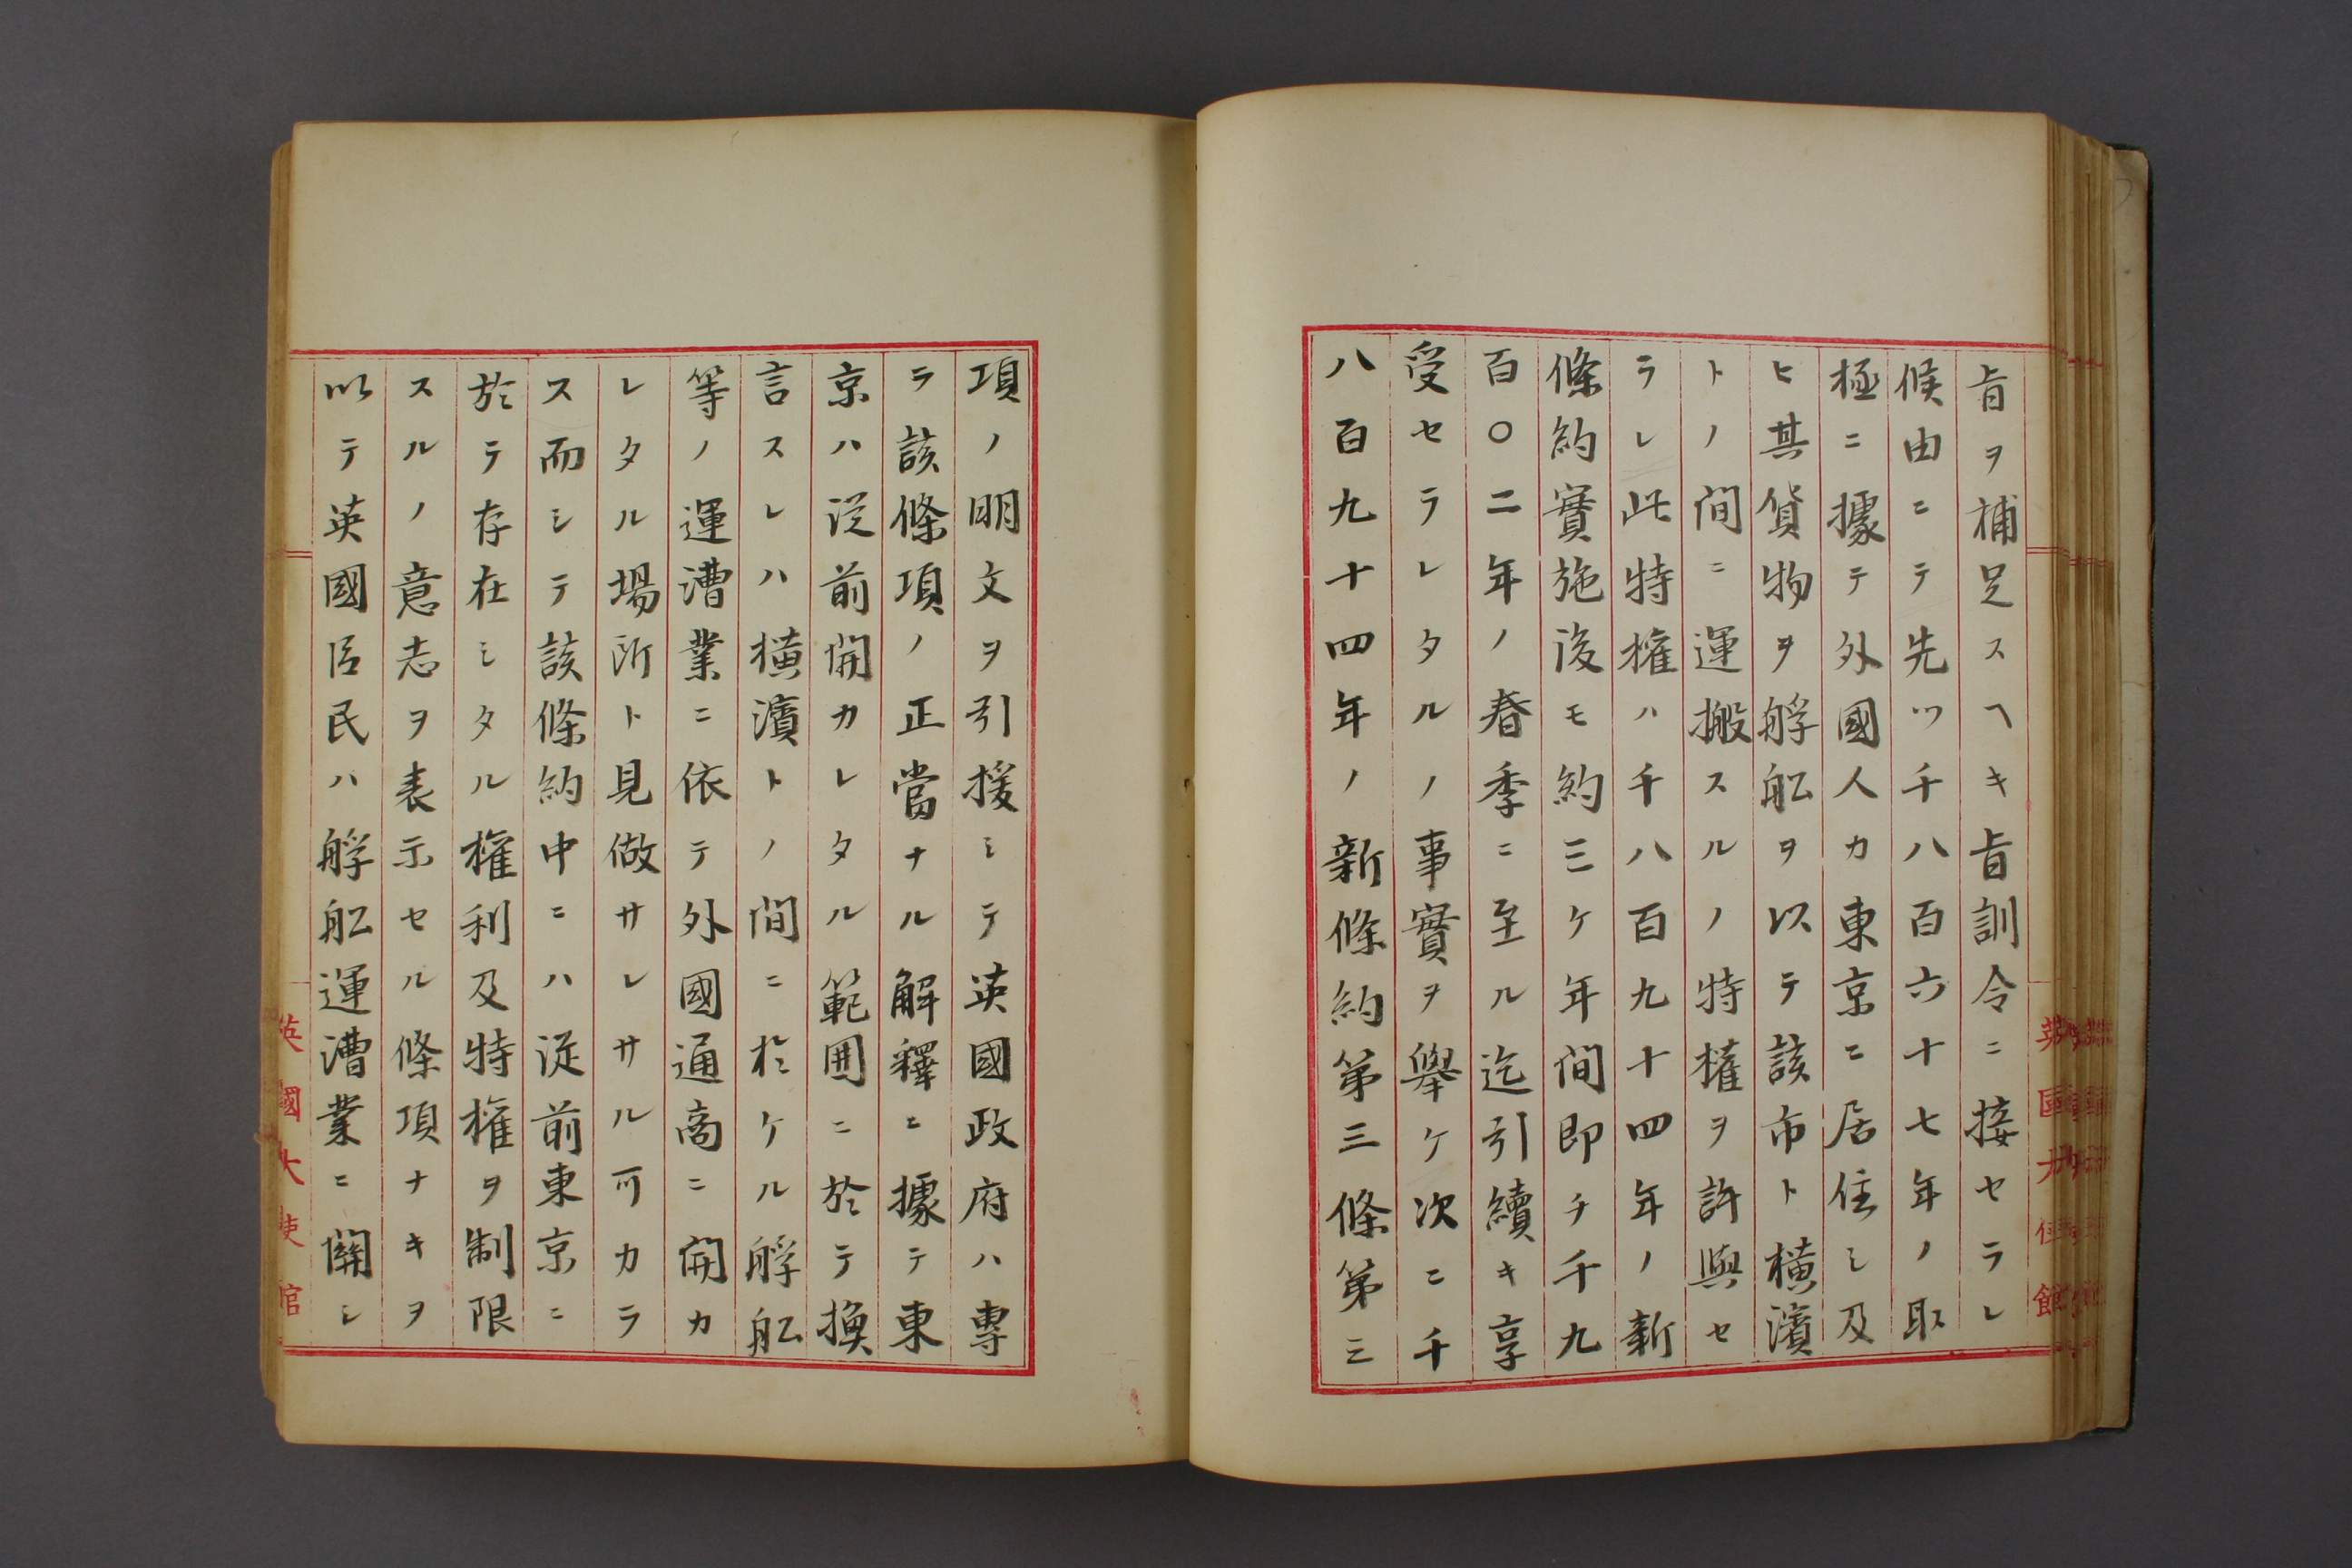 旨ヲ補足スヘキ旨訓令ニ接セラレ
候由ニテ先ツ千八百六十七年ノ取
極ニ據テ外國人カ東京ニ居住シ及
ヒ其貨物ヲ艀舩ヲ以テ該市ト横濱
トノ間ニ運搬スルノ特權ヲ許與セ
ラレ此特權ハ千八百九十四年ノ新
條約實施後モ約三ケ年間即チ千九
百〇二年ノ春季ニ至ル迄引續キ享
受セラレタルノ事實ヲ舉ケ次ニ千
八百九十四年ノ新條約第三條第三
項ノ明文ヲ引援シテ英國政府ハ專
ラ該條項ノ正當ナル解釋ニ據テ東
京ハ従前開カレタル範囲ニ於テ換
言スレハ横濱トノ間ニ於ケル艀舩
等ノ運漕業ニ依テ外國通商ニ開カ
レタル場所ト見做サレサル可カラ
ス而シテ該條約中ニハ従前東京ニ
於テ存在シタル權利及特權ヲ制限
スルノ意志ヲ表示セル條項ナキヲ
以テ英國臣民ハ艀舩運漕業ニ關シ
英國大使館